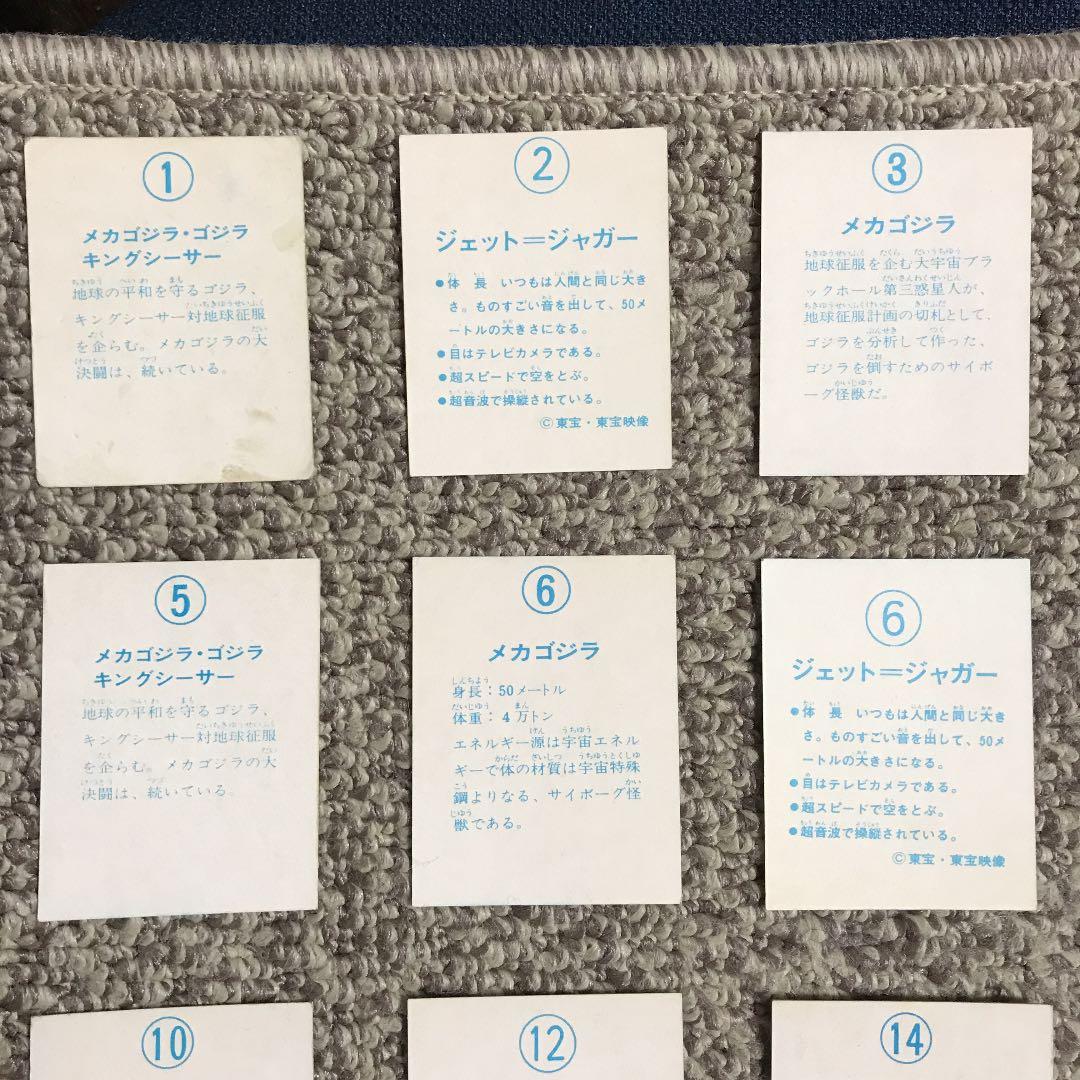 ①
メカゴジラ・ゴジラ
キングシーサー
地球の平和を守るゴジラ、
キングシーサー対地球征服
を企らむ。メカゴジラの大
決闘は、続いている。
②
ジェット＝ジャガー
●体長 いつもは人間と同じ大き
さ。ものすごい音を出して、50メ
ートルの大きさになる。
●目はテレビカメラである。
●超スピードで空をとぶ。
●超音波で操縦されている。
©東宝・東宝映像
③
メカゴジラ
地球征服を企む大宇宙ブラ
ックホール第三惑星人が、
地球征服計画の切札として、
ゴジラを分析して作った、
ゴジラを倒すためのサイボ
ーグ怪獣だ。
⑤
メカゴジラ・ゴジラ
キングシーサー
地球の平和を守るゴジラ、
キングシーサー対地球征服
を企らむ。メカゴジラの大
決闘は、続いている。
⑥
メカゴジラ
身長：50メートル
体重：4万トン
エネルギー源は宇宙エネル
ギーで体の材質は宇宙特殊
鋼よりなる、サイボーグ怪
獣である。
⑥
ジェット＝ジャガー
●体長 いつもは人間と同じ大き
さ。ものすごい音を出して、50メ
ートルの大きさになる。
●目はテレビカメラである。
●超スピードで空をとぶ。
●超音波で操縦されている。
©東宝・東宝映像
⑩
⑫
⑭